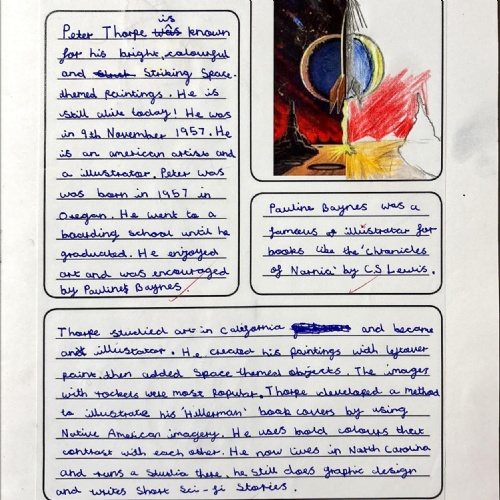 Peter Thorpe is known
for his bright, colourful
and Striking Space.
themed paintings. He is
still alive today! He was
in 9th November 1957. He
is an american artist and
a illustrator. Peter was
was born in 1957 in
Oregan. He went to a
boarding school until he
graduated. He enjoyed
art and was encouraged
by Pauline Baynes.
Pauline Baynes was a
famous illustrator for
books like the 'Chronicles
of Narnia' by C.S Lewis.
Thorpe studied art in California and became
an illustator. He created his paintings with leftover
paint, then added Space themed objects. The images
with rockets were most popular. Thorpe developed a method
to illustrate his 'Hillerman' book covers by using
Native American imagery. He uses bold colours that
contrast with each other. He now lives in North Carolina
and runs a studio there. he still does graphic design
and writes Short Sci-fi Stories.